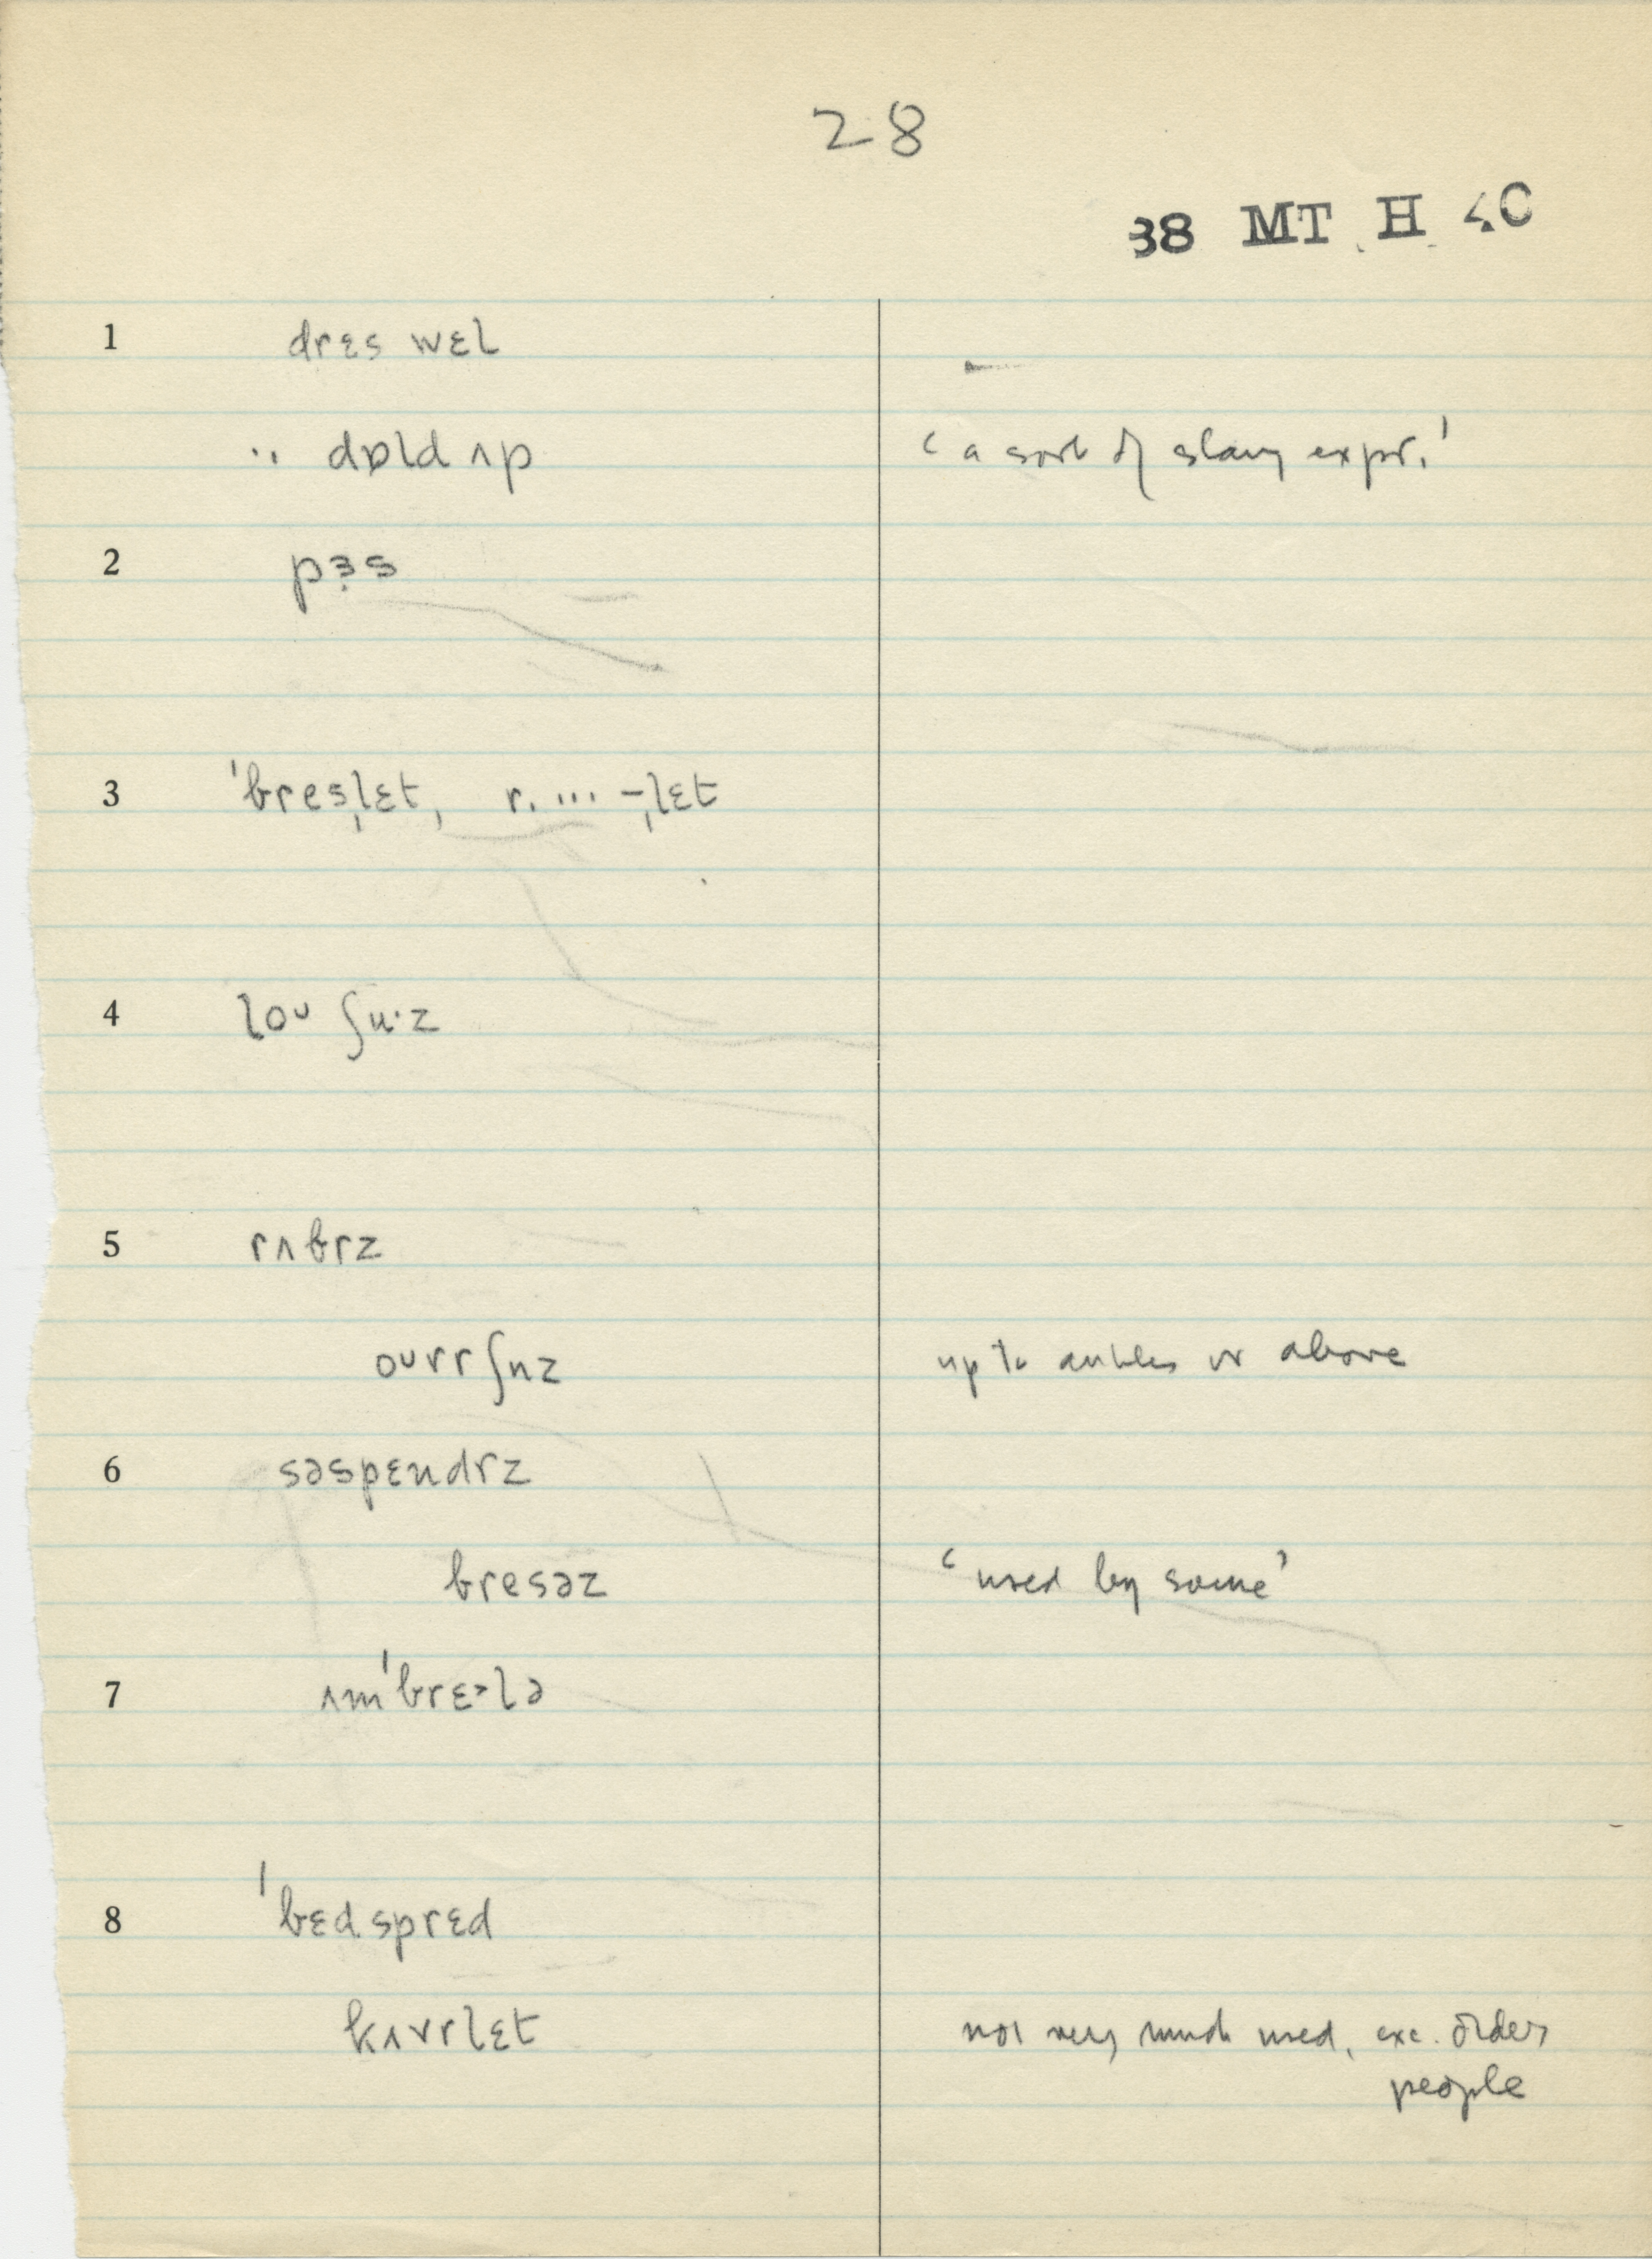 28
38 MT H 4C
1 drɛs wɛl
·· dɒld ʌp ‘a sort of slang expr.’
2 pɜs
3 ˈbresˌlɛt, r. ... –ˌlɛt
4 loᴜ ʃu·z
5 rʌbrz
oᴜvr ʃuz up to ankles or above
6 səspɛndrz
bresəz ‘used by some’
7 ʌmˈbrɛ˃lə
8 ˈbɛdsprɛd
kʌvrlɛt not very much used, exc. older
people